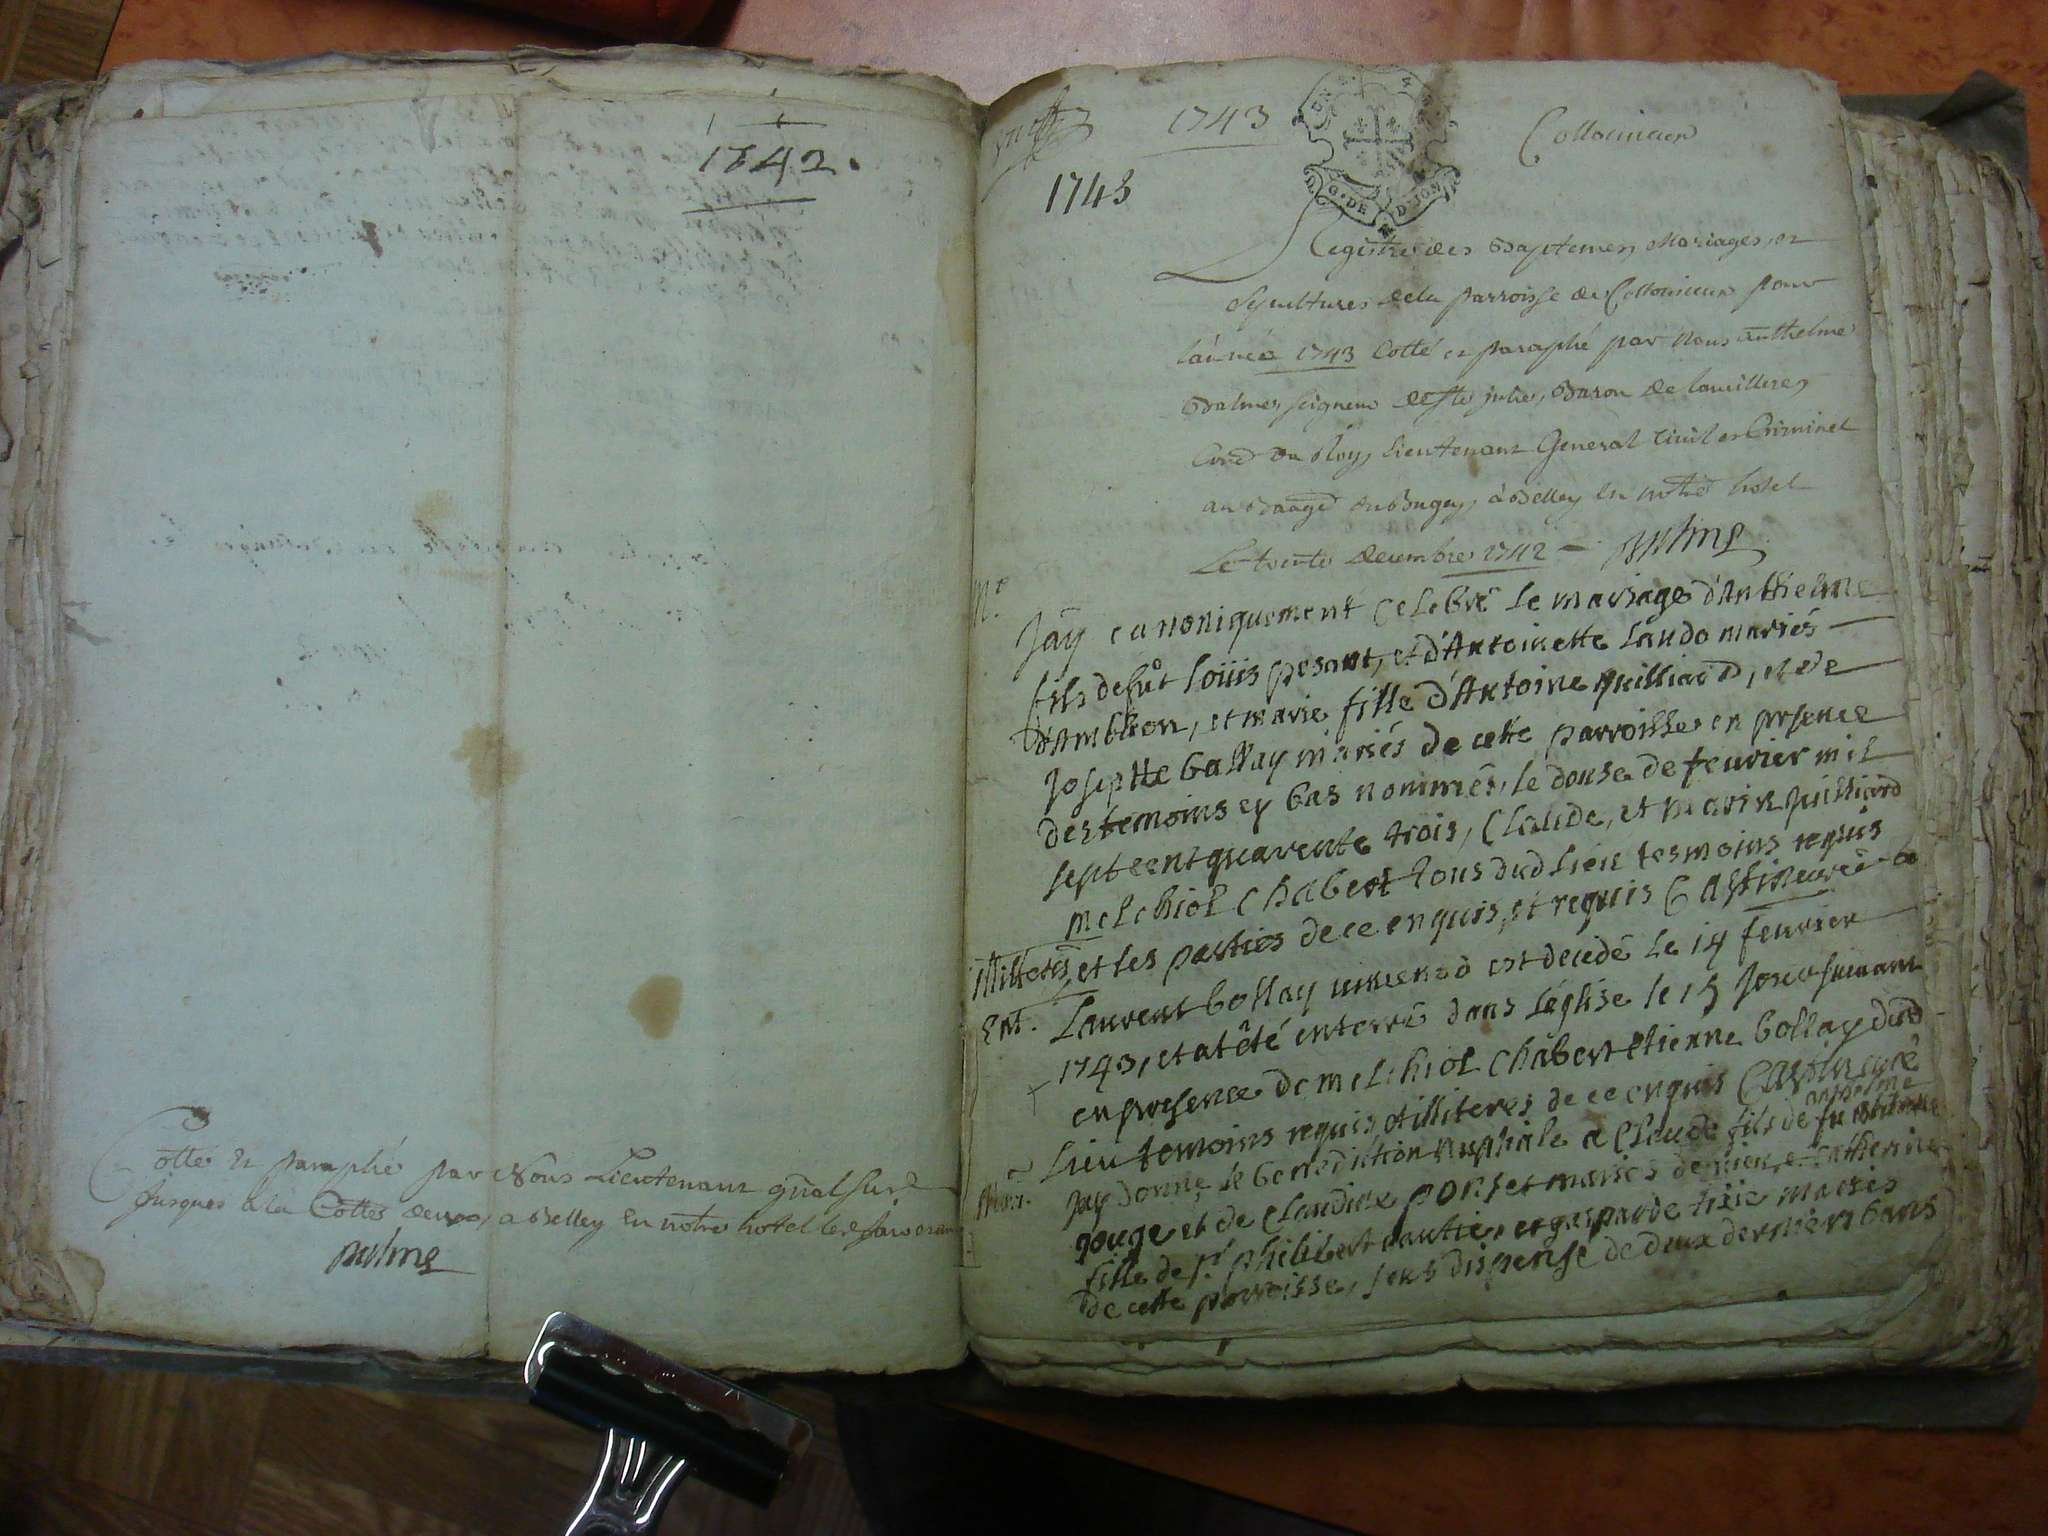 1742.
Cotté et paraphé par Nous Lieutenant gñal sur.d
jusques à la Cotte deux, a Belley en notre hotel les jour et an
Balme
1743
Collomieux
1743
G. DE DIJON
Registre des Baptemes, Mariages, et
Sepultures de la parroisse de Collomieux pour
l'année 1743 Cotté et paraphé par Nous anthelme
Balme, seigneur de Ste julie, Baron de
Lieutenant General Civil et Criminel
au Baage du Bugey, a Belley en notre hotel
Le trente decembre 1742 Balme
M.e
Jay canoniquement celebré le mariage d'Anthelme
fils de fut loüis pesant, et d'Antoinette lando mariés
d'Ambleon, et marie fille d'Antoine juilliard, et de
Josephte bollay mariés de cette parroisse en presence
des temoins cy bas nommés, le douse de feurier mil
sept cent quarente trois, Claude, et marin juilliard
melchiol Chabert tous dud lieu tesmoins requis
illiteres, et les parties de ce enquis, et requis Castin curé
Ent. Laurent bollay est decedé le 14 feurier
1743, et at êté enterré dans l'église le 15 jour suiuant
en presence de melchiol Chabert etienne bollay dud
Lieu temoins requis et illiteres de ce enquis Castin curé
anthelme
Mari. Jay donné la benediction nuptiale a Claude fils de fu
gouge et de Claudine ponset mariés de et Catherine
fille de p.r philibert gautier et gasparde mariés
de cette parroisse, sous dispense de deux derniers bans